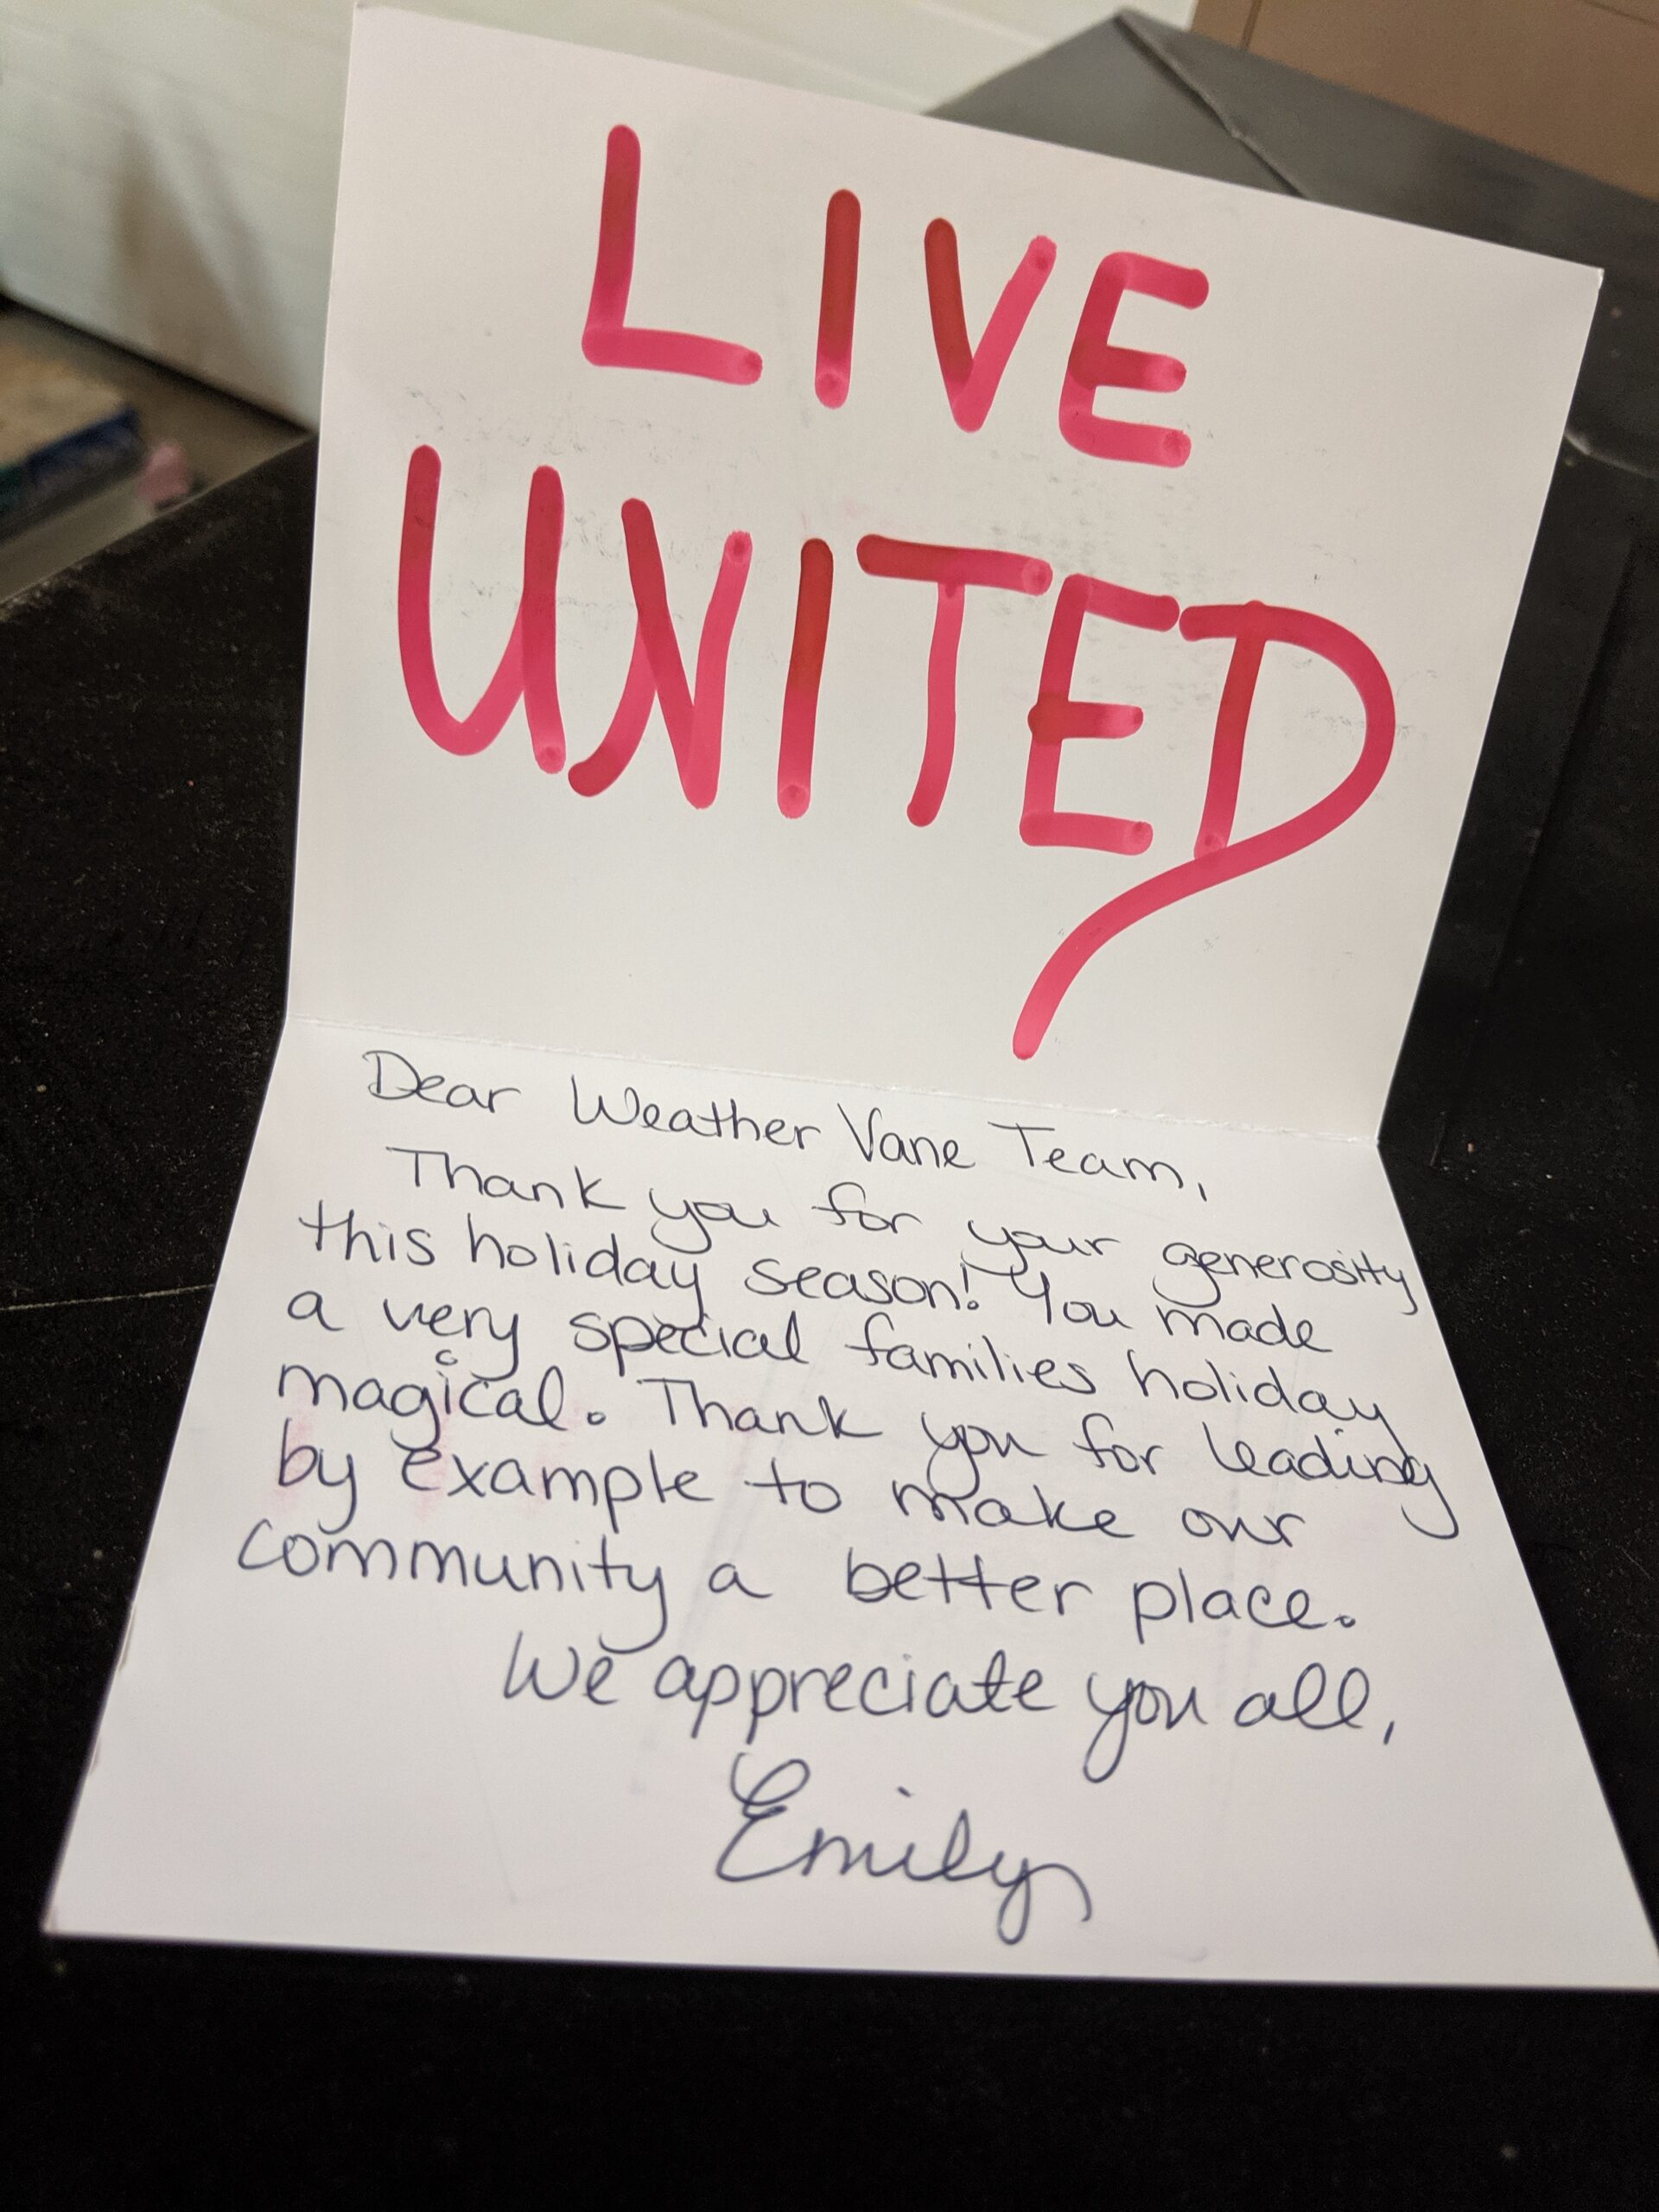 LIVE
UNITED
Dear Weather Vane Team,
Thank you for your generosity
this holiday season! You made
a very special families holiday
magical. Thank you for leading
by example to make our
community a better place.
We appreciate you all,
Emily